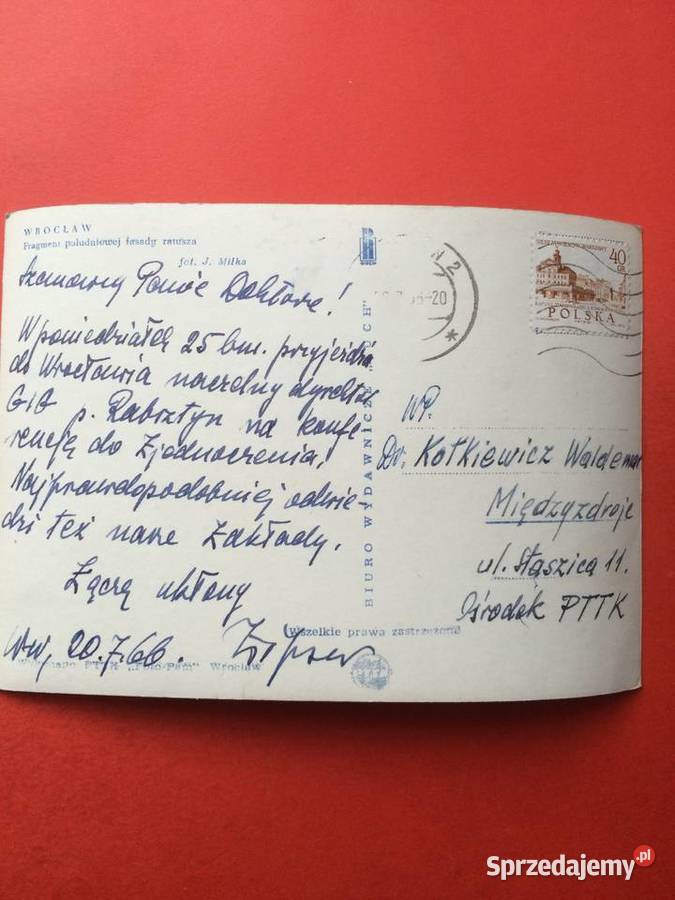 WROCŁAW
Fragment południowej fasady ratusza
fot. J. Milka
Szanowny Panie Doktorze!
W poniedziałek 25 bm. przyjeżdża
do Wrocławia naczelny dyrektor
GIG p. Rabsztyn na konfe-
rencję do Zjednoczenia.
Najprawdopodobniej odwie-
dzi też nasze Zakłady.
Łączę ukłony
Wrw, 20.7.66.
BIURO WYDAWNICZE "RUCH"
Wszelkie prawa zastrzeżone
Wrocław
N 2
-20
40
GR
POLSKA
WP.
Dr. Kotkiewicz Waldemar
Międzyzdroje
ul. Staszica 11.
Ośrodek PTTK
Sprzedajemy.pl